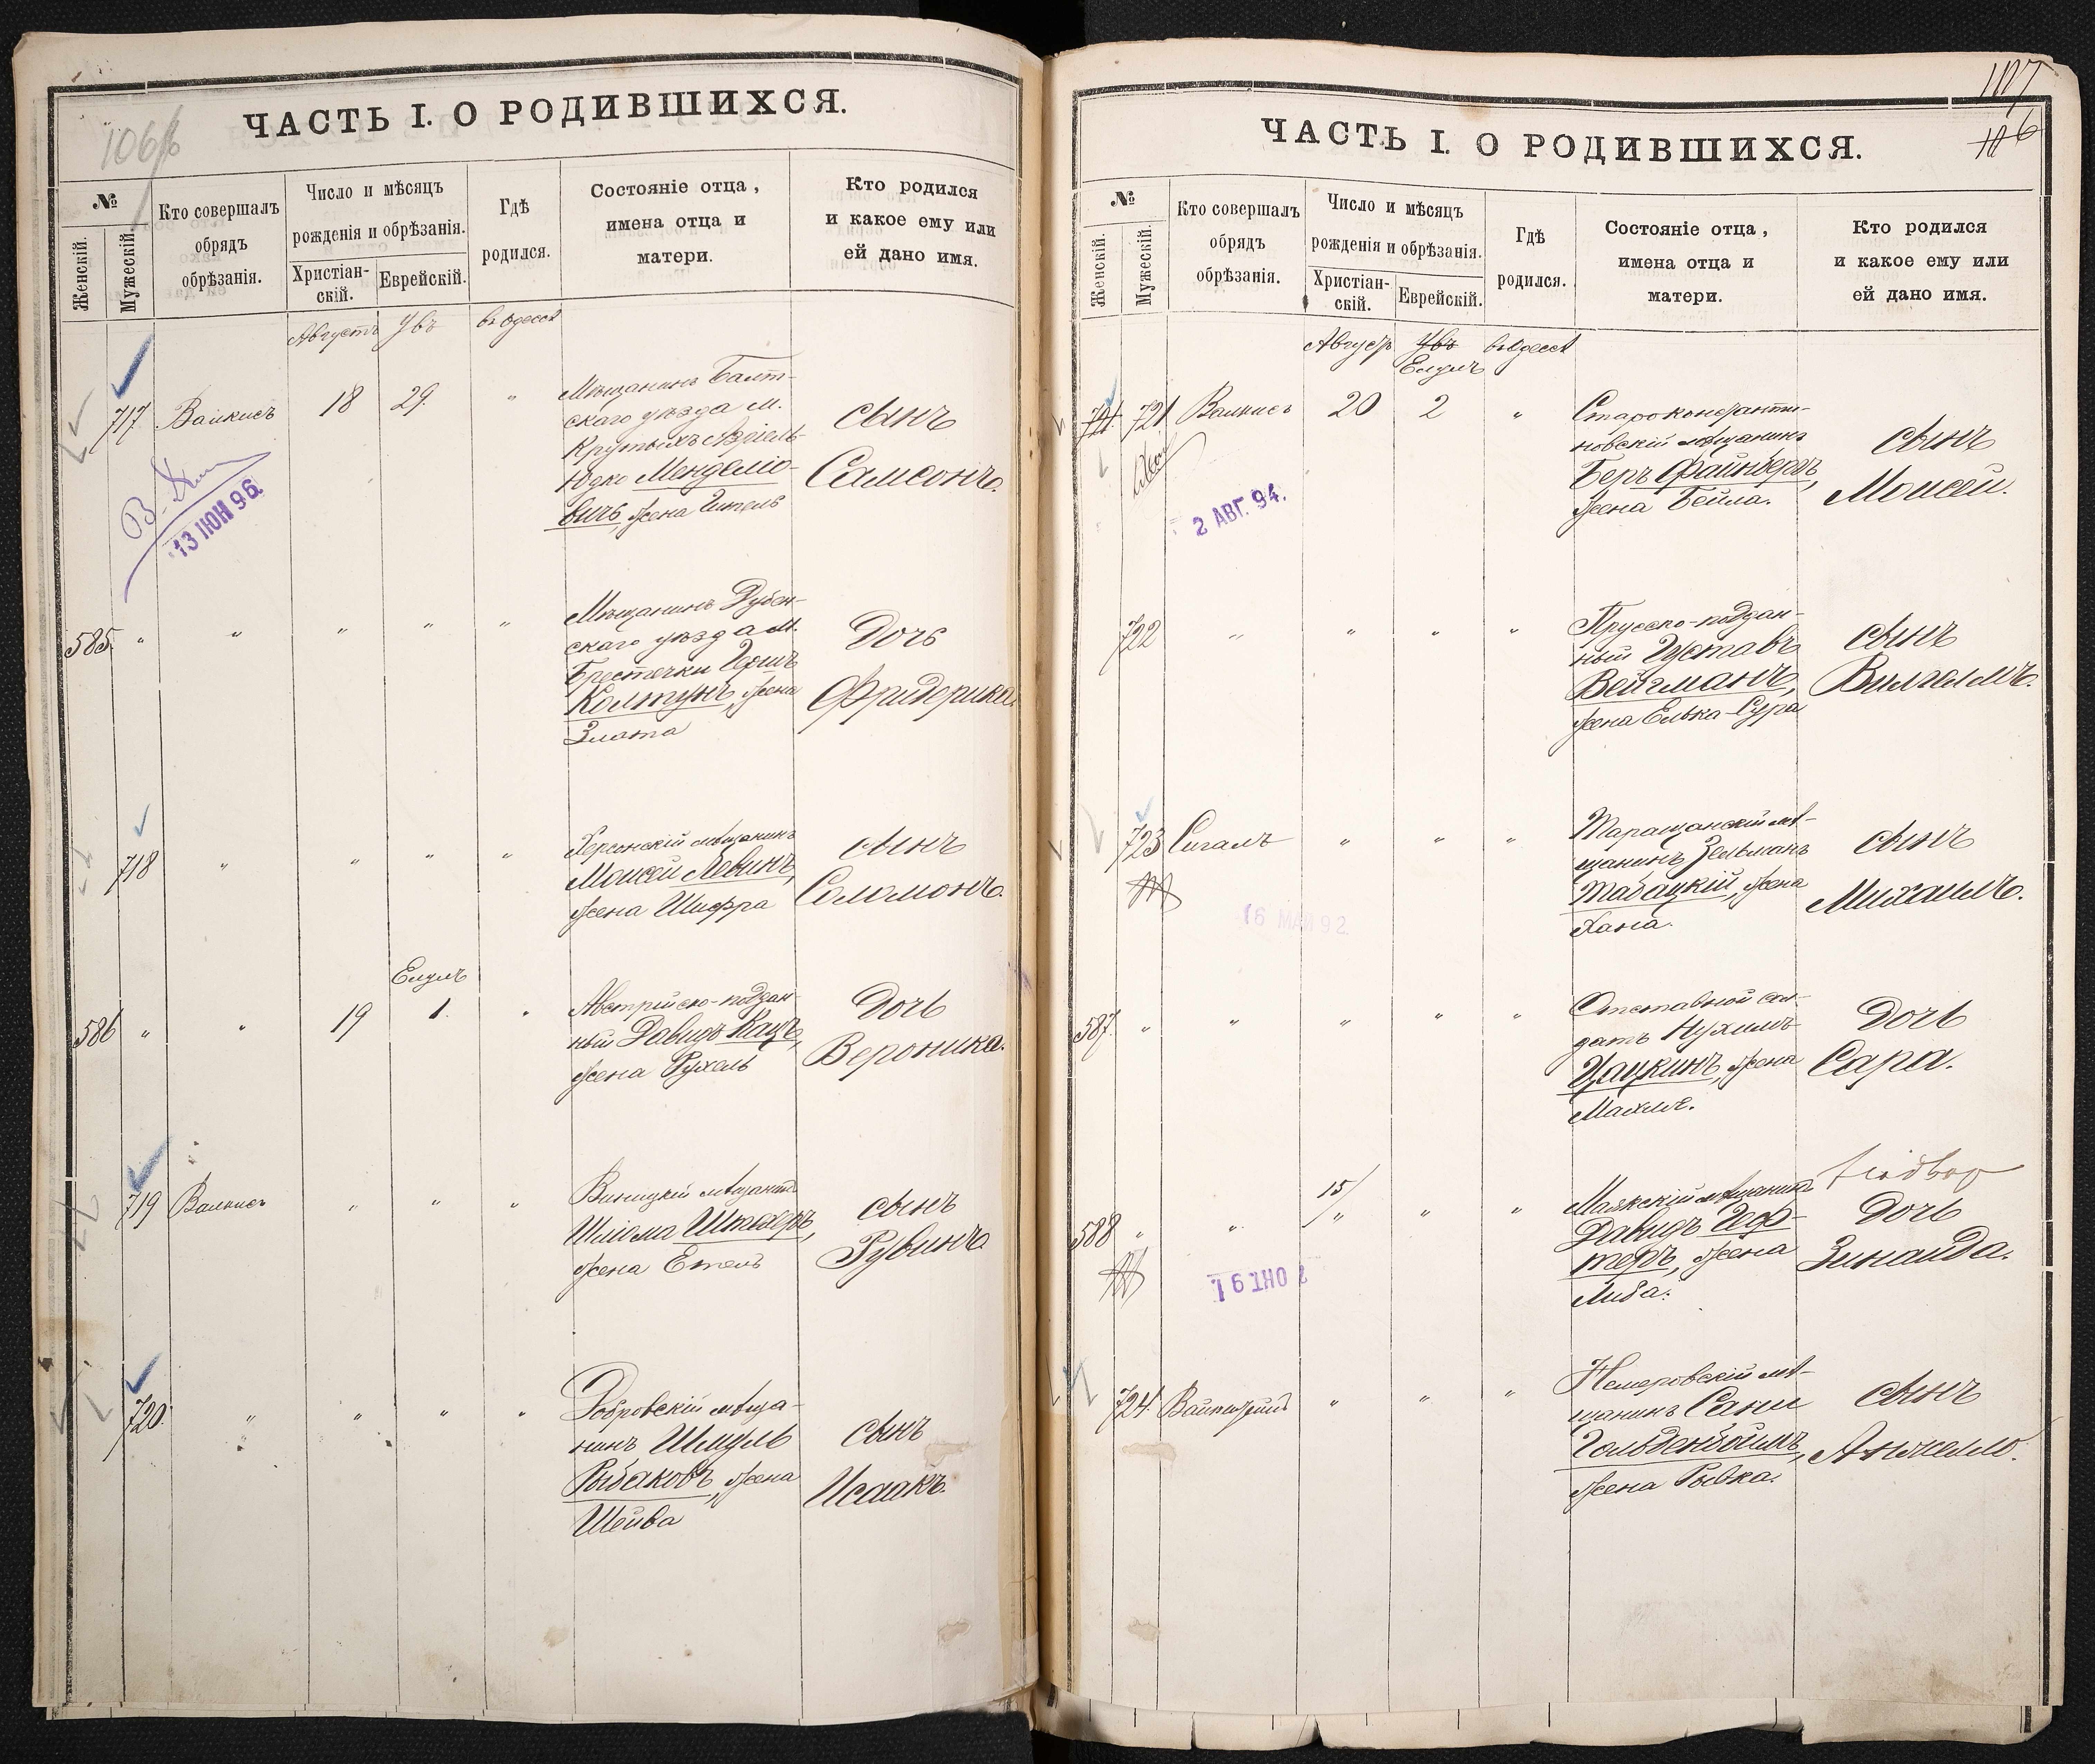 106
ЧАСТЬ I. О РОДИВШИХСЯ.
№
Женскій.
Мужескій.
Кто совершалъ
обрядъ
обрѣзанія.
Число и мѣсяцъ
рожденія и обрѣзанія.
Христіан-
скій.
Еврейскій.
Гдѣ
родился.
Состояніе отца,
имена отца и
матери.
Кто родился
и какое ему или
ей дано имя.
Августъ
въ Одессѣ
717 Вайкисъ 18 29. "
Мѣщанинъ Балт-
скаго уѣзда м.
Крутыхъ Азріель-
Юдко Менделіо-
вичъ, жена Гитель
сынъ
Самсонъ.
13 ІЮН 96
585. " " " " "
Мѣщанинъ Дубен-
скаго уѣзда м.
Берестечки Герш
Колтунъ, жена
Злата
Дочь
Фридерика.
718 " " " "
Херсонскій мѣщанинъ
Моисей Левинъ,
жена Шифра
сынъ
Соломонъ.
Елулъ
586 " " 19 1. "
Австрійско-поддан-
ный Давидъ Кацъ,
жена Рухель
Дочь
Вероника.
719 Вайкисъ " " "
Виницкій мѣщанинъ
Шліома Штехеръ,
жена Етель
сынъ
Рувинъ
720. " " " "
Добровскій мѣща-
нинъ Шмуль
Рыбаковъ, жена
Шейва
сынъ
Исаакъ.
107
106
ЧАСТЬ I. О РОДИВШИХСЯ.
№
Женскій.
Мужескій.
Кто совершалъ
обрядъ
обрѣзанія.
Число и мѣсяцъ
рожденія и обрѣзанія.
Христіан-
скій.
Еврейскій.
Гдѣ
родился.
Состояніе отца,
имена отца и
матери.
Кто родился
и какое ему или
ей дано имя.
въ Одессѣ
Елулъ
721 721 Вайкисъ 20 2 "
Староконстанти-
новскій мѣщанинъ
Беръ Файнберъ,
жена Бейла.
сынъ
Моисей.
2 АВГ. 94.
722 " " " "
Прусско-поддан-
ный Густавъ
Вейгманъ,
жена Елька-Сура
сынъ
Вилгелмъ.
723 Сигалъ " " "
Таращанскій мѣ-
щанинъ Зельманъ
Табацкій, жена
Хана.
сынъ
Михаилъ.
16 МАЙ 92
587. " " " " "
Отставной сол-
датъ Нухимъ
Цацкинъ, жена
Махля.
Дочь
Сара.
15/
588 " " " " "
Маякскій мѣщанинъ
Давидъ Геф-
теръ, жена
Либа.
Дочь
Зинаида.
2 ОКТ. 91.
724. " " "
Немеровскій мѣ-
щанинъ Сани
Гольденбоимъ,
жена Рывка.
сынъ
Анжелло.